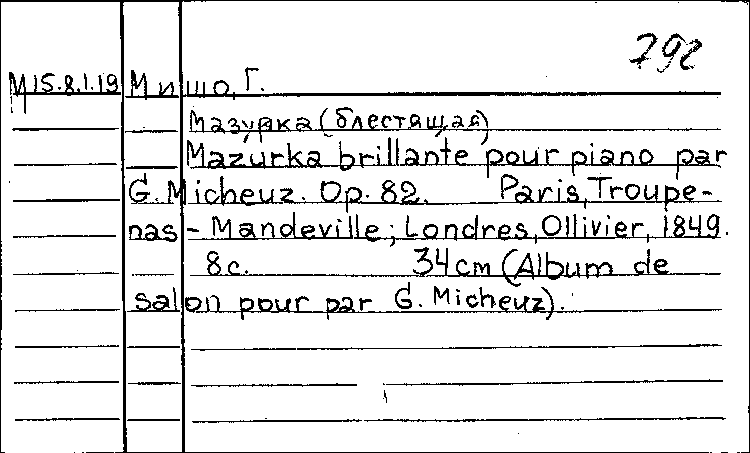 792
M15.8.1.19 Мишо, Г.
Мазурка (блестящая)
Mazurka brillante pour piano par
G. Micheuz. Op. 82. Paris, Troupe-
nas - Mandeville; Londres, Ollivier, 1849.
8с. 34cm (Album de
salon pour par G. Micheuz).